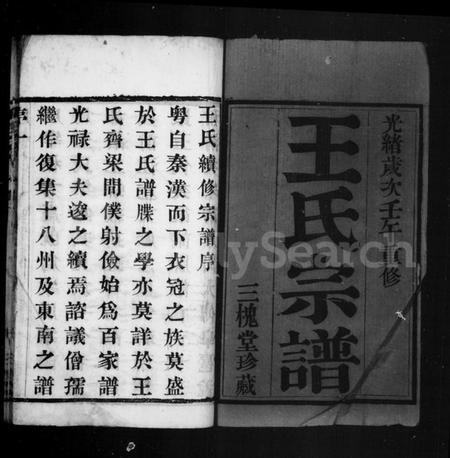 光緒歲次壬午重修
王氏宗譜
三槐堂珍藏
王氏續修宗譜序
粤自秦漢而下衣冠之族莫盛
於王氏譜牒之學亦莫詳於王
氏齊梁間僕射儉始爲百家譜
光祿大夫逡之續焉諮議僧孺
繼作復集十八州及東南之譜